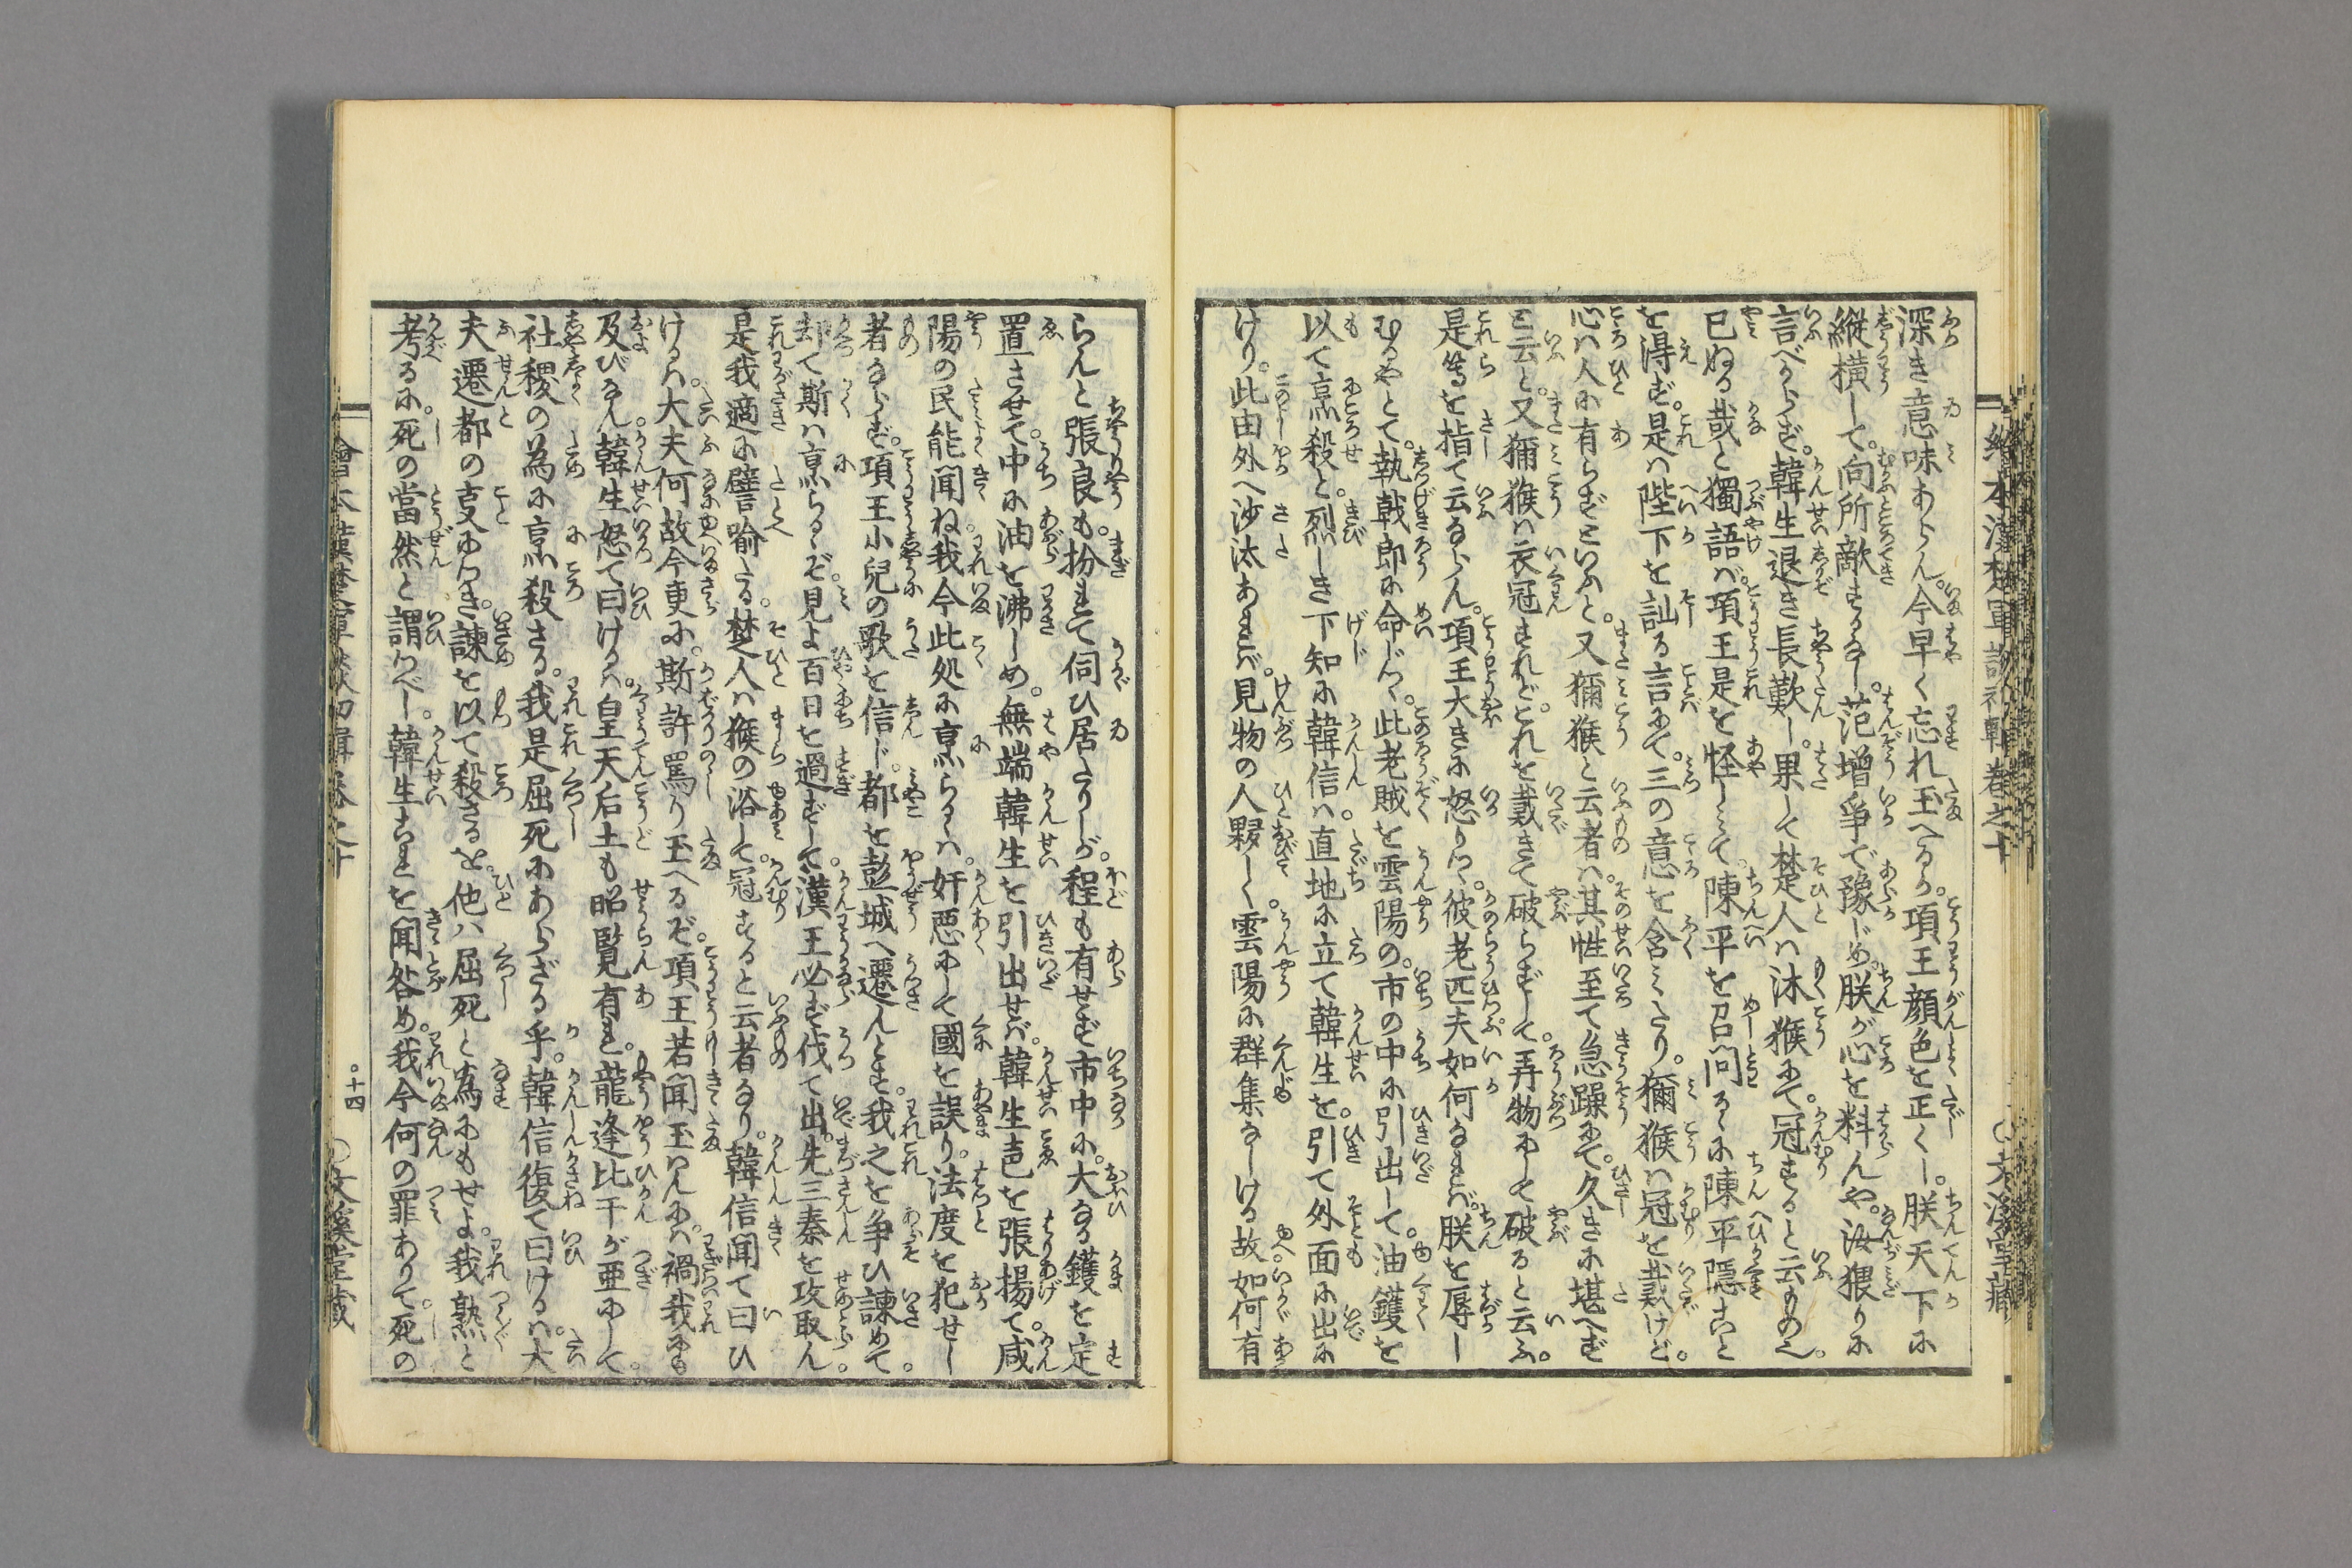 深き意味あらん。今早く忘れ玉へるか。項王顔色を正くし。朕天下に
縦横して。向所敵するなし。范増争で豫じめ。朕が心を料んや。汝猥りに
言べからず。韓生退き長歎し。果して楚人は沐猴にて。冠すると云ものゝ
已ぬる哉と獨語ば。項王是を怪しみて。陳平を召問るゝに陳平隠すこと
を得ず。是は陛下を訕る言にて。三の意を含みたり。獼猴は冠を戴けど。
心は人に有らずといふと。又獼猴と云者は。其性至て急躁にて。久きに堪へず
と云と。又獼猴は衣冠すれど。これを戴きて破らずして。弄物にして破ると云ふ。
是等を指て云ならん。項王大きに怒りつゝ。彼老匹夫如何なれば。朕を辱し
むるやとて。執戟郎に命じつゝ。此老賊を雲陽の。市の中に引出して。油鑊を
以て烹殺と。烈しき下知に韓信は。直地に立て韓生を。引て外面に出に
けり。此由外へ沙汰あれば。見物の人夥しく。雲陽に群集なしける故。如何有
繪本漢楚軍談初輯巻之十
〇文溪堂藏
らんと張良も。扮れて伺ひ居たりしが。程も有せず市中に。大なる鑊を定
置させて。中に油を沸しめ。無端韓生を引出せば。韓生声を張揚て。咸
陽の民能聞ね我今此処に烹らるゝは。奸悪にして國を誤り。法度を犯せし
者ならず。項王小兒の歌を信じ。都を彭城へ遷んとす。我之を争ひ諫めて。
却て斯は烹らるゝぞ。見よ百日を過ずして。漢王必ず伐て出。先三秦を攻取ん。
是我適に譬喩たる。楚人は猴の浴して。冠すると云者なり。韓信聞て曰ひ
けるは。大夫何故今更に。斯許罵り玉へるぞ。項王若聞玉はんには。禍我にも
及びなん。韓生怒て曰けるは。皇天后土も昭覧有れ。龍逢比干が亜にして。
社稷の為に烹殺さる。我是屈死にあらざる乎。韓信復て曰けるは。大
夫遷都の支にはき。諫を以て殺さるを。他は屈死と為にもせよ。我熟と
考るに。死の當然と謂つべし。韓生これを聞咎め。我今何の罪ありて。死の
繪本漢楚軍談初輯巻之十
〇十四
〇文溪堂藏